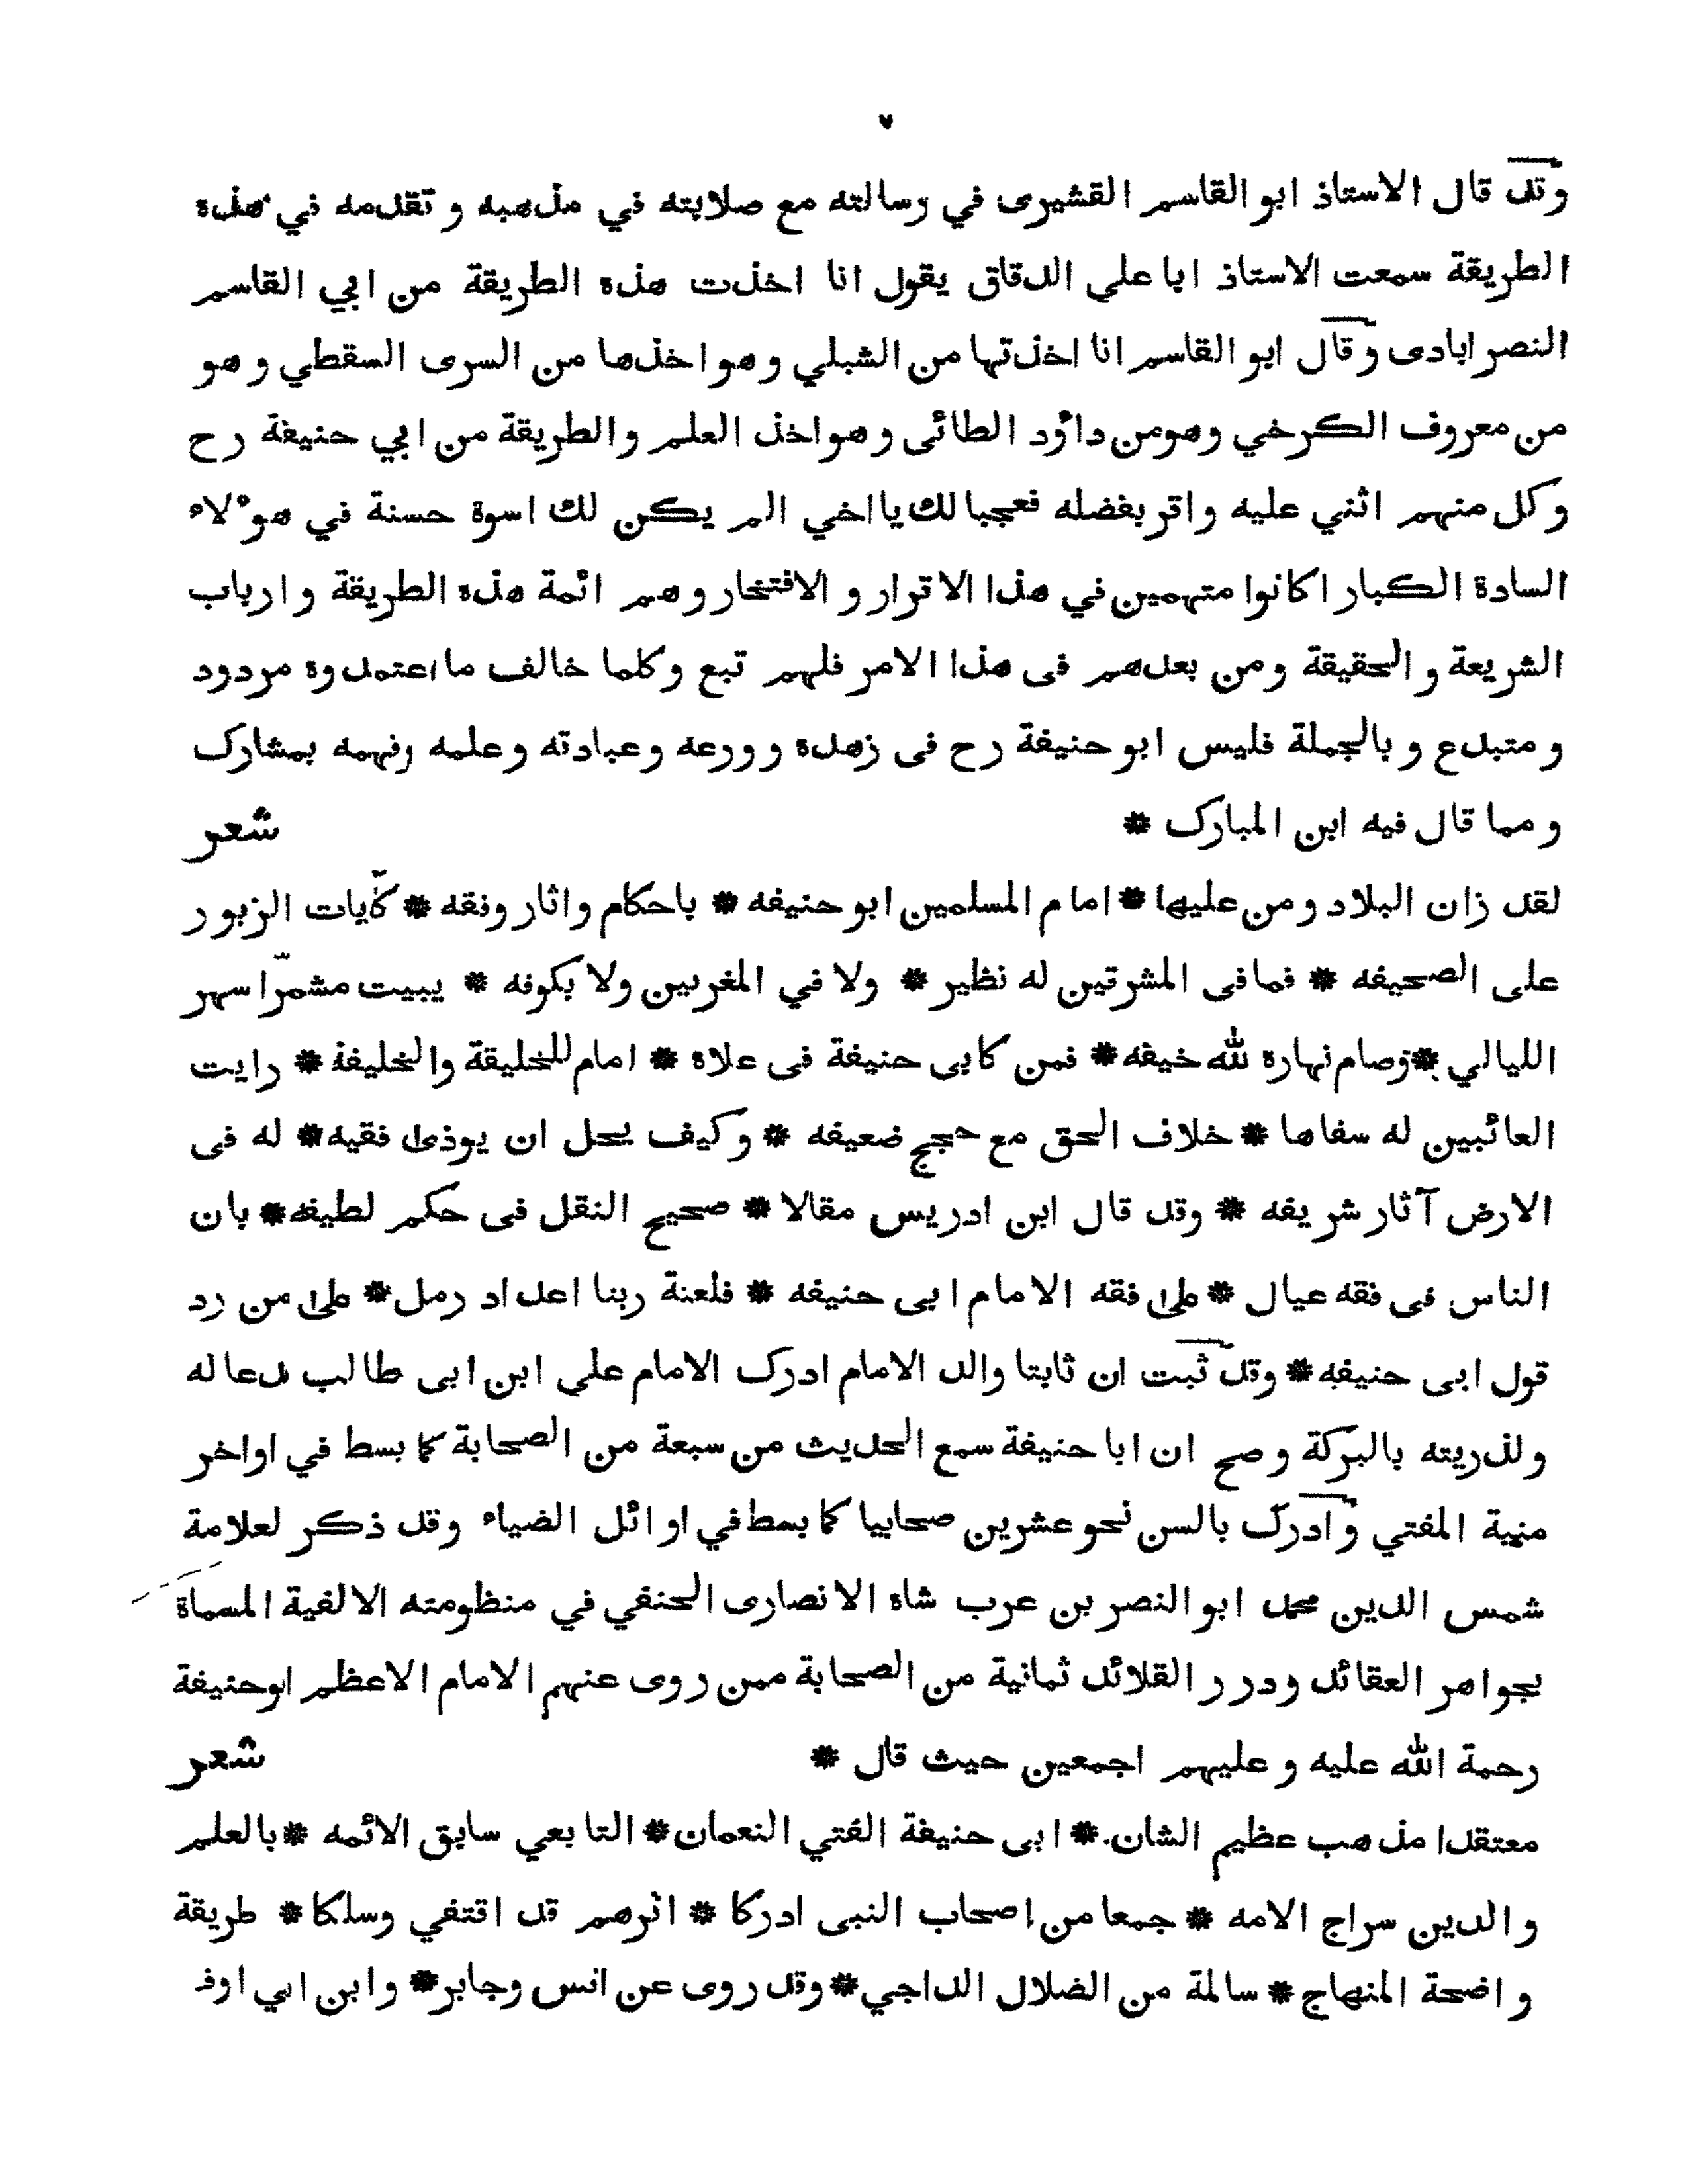 ٧
وقد قال الاستاذ ابو القاسم القشيرى في رسالته مع صلابته في مذهبه و تقدمه في هذه
الطريقة سمعت الاستاذ ابا علي الدقاق يقول انا اخذت هذه الطريقة من ابي القاسم
النصر ابادى وقال ابو القاسم انا اخذتها من الشبلي و هو اخذها من السرى السقطي و هو
من معروف الكرخي وهومن داؤد الطائى و هو اخذ العلم و الطريقة من ابي حنيفة رح
وكل منهم اثني عليه و اقر بفضله فعجبا لك يا اخي الم يكن لك اسوة حسنة في هوٴلاء
السادة الكبار اكانوا متهمين في هذا الاقرار و الافتخار و هم ائمة هذه الطريقة و ارباب
الشريعة و الحقيقة ومن بعدهم فى هذا الامر فلهم تبع وكلما خالف ما اعتمدوه مردود
و متبدع و بالجملة فليس ابو حنيفة رح فى زهده و ورعه وعبادته وعلمه وفهمه بمشارك
و مما قال فيه ابن المبارك * شعر
لقد زان البلاد و من عليها * امام المسلمين ابو حنيفه * باحكام و اثار وفقه * كآيات الزبور
على الصحيفه * فما فى المشرقين له نظير * ولا في المغربين ولا بكوفه * يبيت مشمرّا سهر
الليالي * وصام نهاره لله خيفه * فمن كابى حنيفة فى علاه * امام للخليقة و الخليفة * رايت
العائبين له سفاها * خلاف الحق مع حجج ضعيفه * وكيف يحل ان يوذى فقيه * له فى
الارض آثار شريفه * وقد قال ابن ادريس مقالا * صحيح النقل فى حكم لطيفه * بان
الناس فى فقه عيال * على فقه الامام ابى حنيفه * فلعنة ربنا اعداد رمل * على من رد
قول ابى حنيفه * وقد ثبت ان ثابتا والد الامام ادرك الامام علي ابن ابى طالب فدعا له
ولذريته بالبركة و صح ان ابا حنيفة سمع الحديث من سبعة من الصحابة كما بسط في اواخر
منية المفتي و ادرك بالسن نحو عشرين صحابيا كما بسط في اوائل الضياء وقد ذكر لعلامة
شمس الدين محمد ابو النصر بن عرب شاه الانصارى الحنفي في منظومته الالفية المسماة
بجواهر العقائد و درر القلائد ثمانية من الصحابة ممن روى عنهم الامام الاعظم ابوحنيفة
رحمة الله عليه و عليهم اجمعين حيث قال * شعر
معتقدا مذهب عظيم الشان * ابى حنيفة الفتي النعمان * التابعي سابق الائمه * بالعلم
و الدين سراج الامه * جمعا من اصحاب النبى ادركا * اثرهم قد اقتفي وسلكا * طريقة
و اضحة المنهاج * سالمة من الضلال الداجي * وقد روى عن انس وجابر * و ابن ابي اوفـ